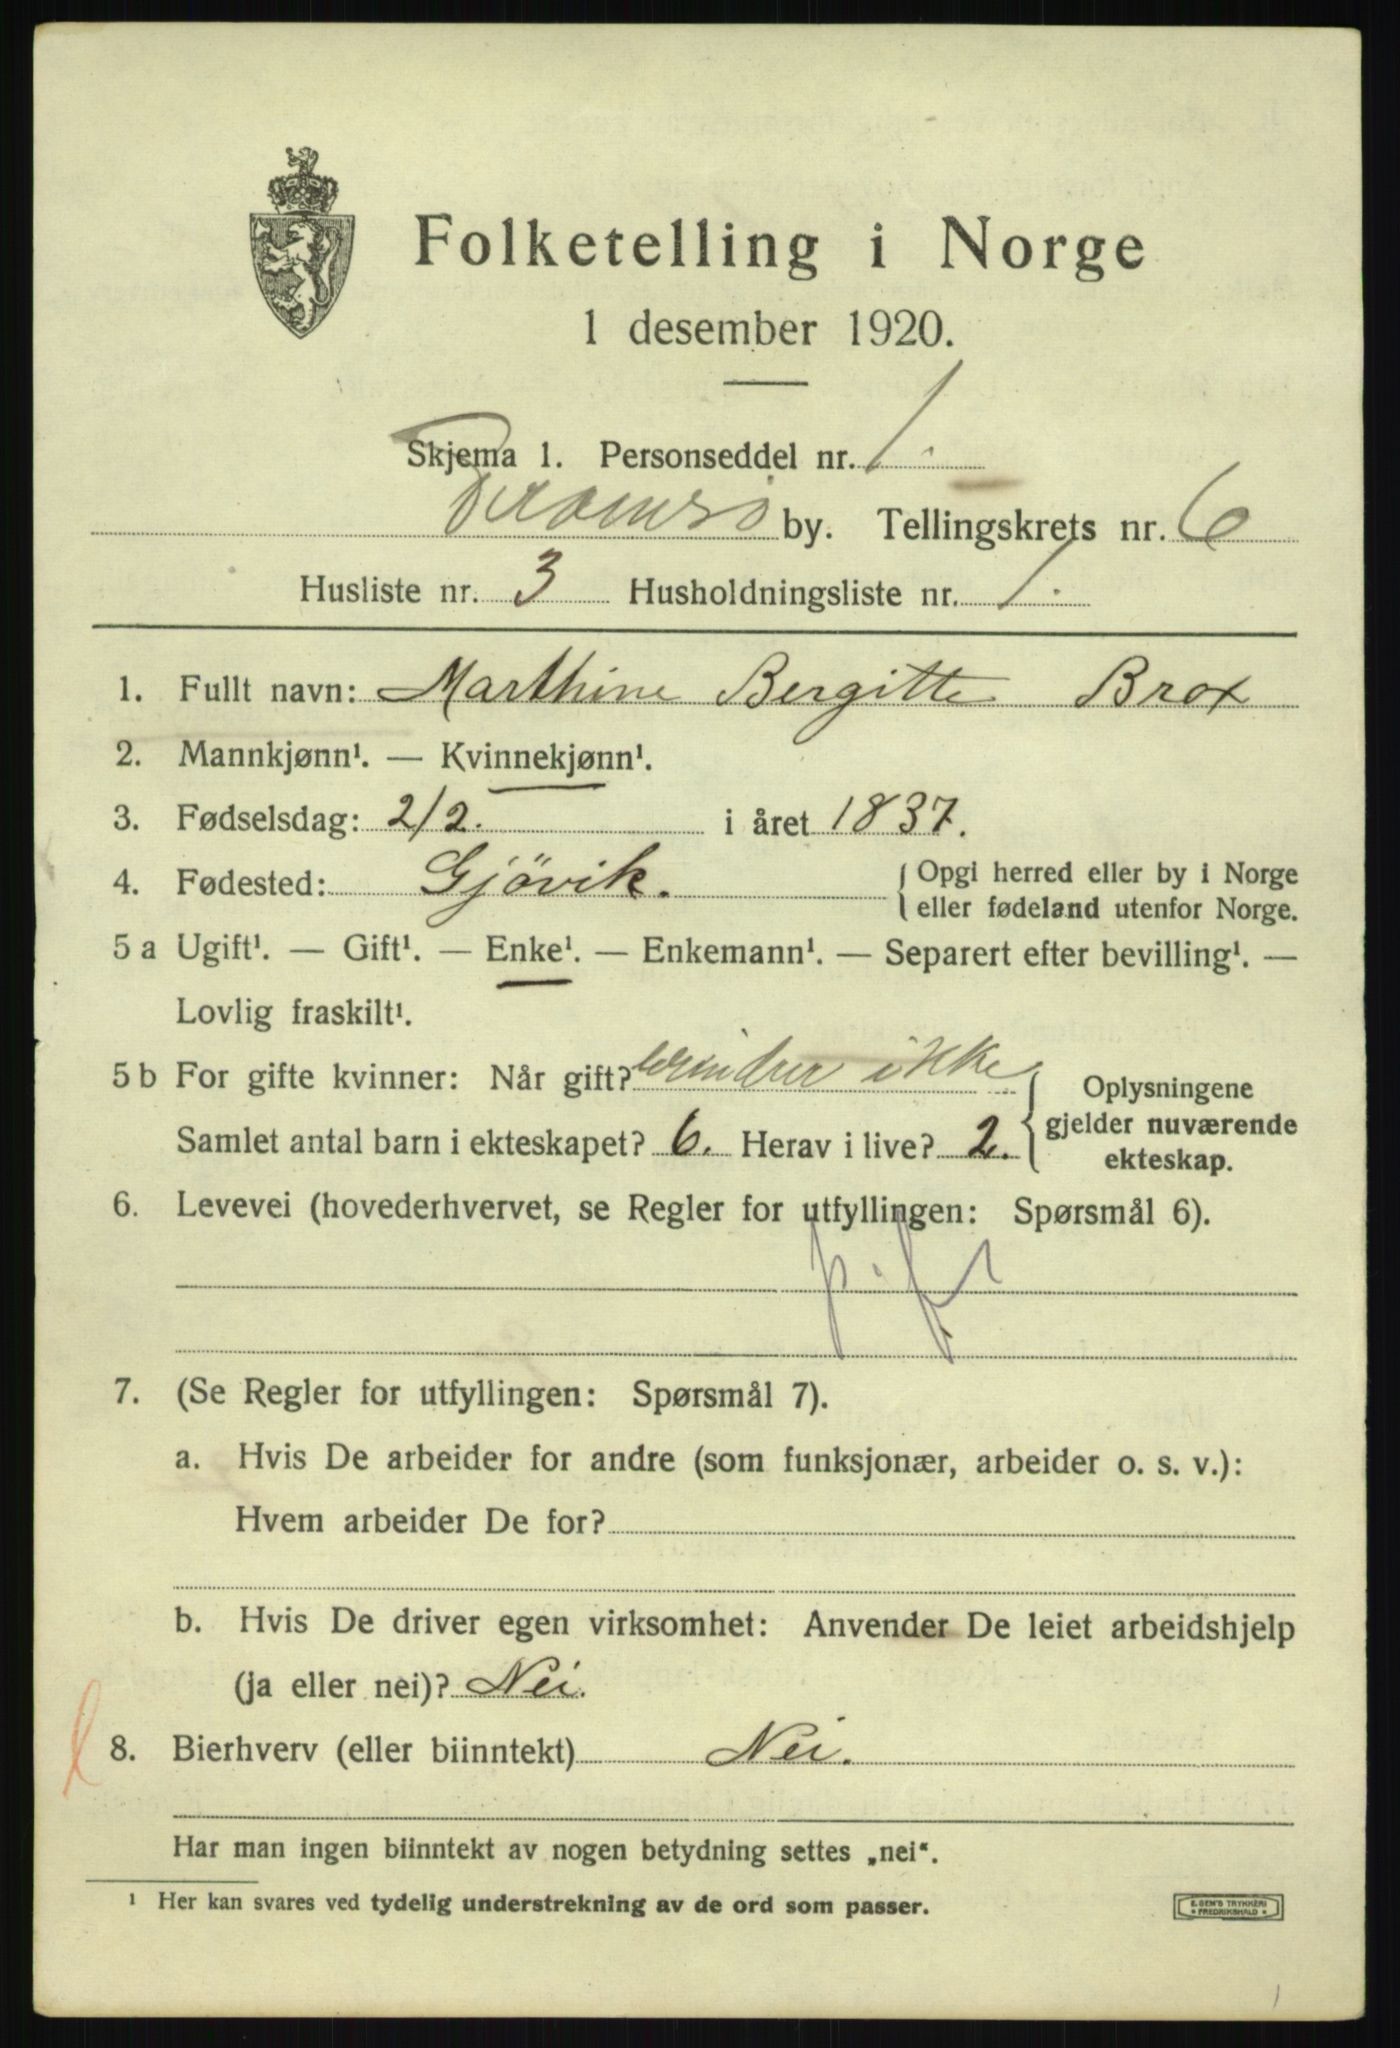 Folketelling i Norge
1 desember 1920.
Skjema 1. Personseddel nr. 1.
Tromsö by. Tellingskrets nr. 6
Husliste nr. 3 Husholdningsliste nr. 1.
1. Fullt navn: Marthine Bergitte Brox
2. Mannkjønn¹. — Kvinnekjønn¹.
3. Fødselsdag: 2/2. i året 1837.
4. Fødested: Gjövik. { Opgi herred eller by i Norge
eller fødeland utenfor Norge.
5 a Ugift¹. — Gift¹. — Enke¹. — Enkemann¹. — Separert efter bevilling¹. —
Lovlig fraskilt¹.
5 b For gifte kvinner: Når gift? erindrer ikke
Samlet antal barn i ekteskapet? 6. Herav i live? 2. { Oplysningene
gjelder nuværende
ekteskap.
6. Levevei (hovederhvervet, se Regler for utfyllingen: Spørsmål 6).
7. (Se Regler for utfyllingen: Spørsmål 7).
a. Hvis De arbeider for andre (som funksjonær, arbeider o. s. v.):
Hvem arbeider De for?
b. Hvis De driver egen virksomhet: Anvender De leiet arbeidshjelp
(ja eller nei)? Nei.
8. Bierhverv (eller biinntekt) Nei.
Har man ingen biinntekt av nogen betydning settes „nei“.
¹ Her kan svares ved tydelig understrekning av de ord som passer.
E. SEM'S TRYKKERI
• FREDRIKSHALD •